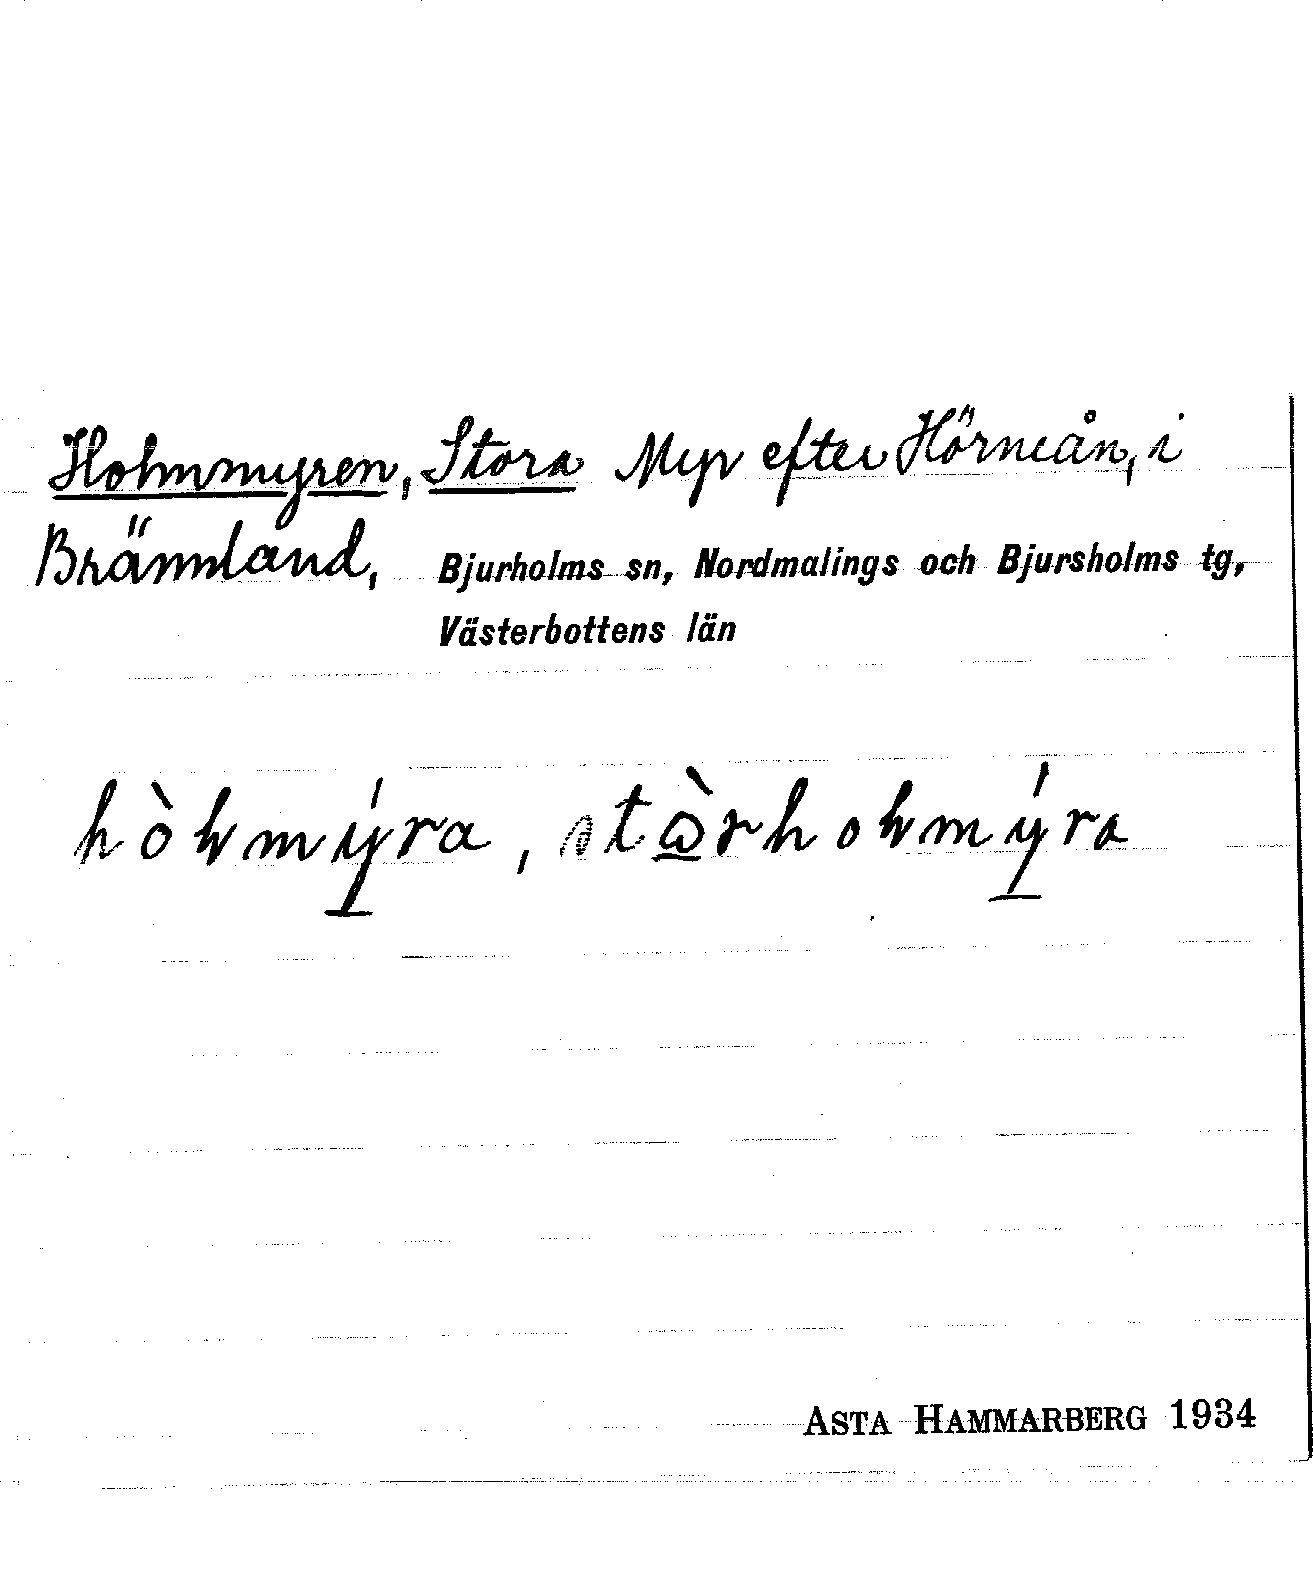 Holmmyren, Stora Myr efter Hörneån, i
Brännland, Bjurholms sn, Nordmalings och Bjursholms tg,
Västerbottens län
hòlmýra, stòrholmýra
ASTA HAMMARBERG 1934